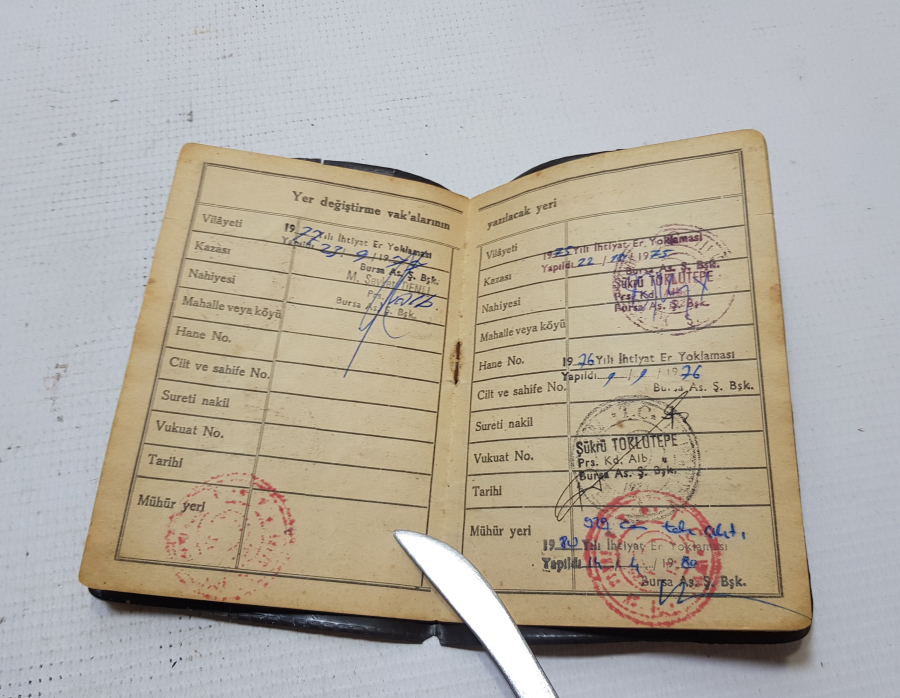 Yer değiştirme vak'alarının
Vilâyeti
Kazası
Nahiyesi
Mahalle veya köyü
Hane No.
Cilt ve sahife No.
Sureti nakil
Vukuat No.
Tarihi
Mühür yeri
1977 Yılı İhtiyat Er Yoklaması
Yapıldı 23/9/1977
Bursa As. Ş. Bşk.
M.
Bursa As. Ş. Bşk.
yazılacak yeri
Vilâyeti
Kazası
Nahiyesi
Mahalle veya köyü
Hane No.
Cilt ve sahife No.
Sureti nakil
Vukuat No.
Tarihi
Mühür yeri
1975 Yılı İhtiyat Er Yoklaması
Yapıldı 22/ /1975
Bursa As. Ş. Bşk.
Şükrü TOKLUTEPE
Prs. Kd.
Bursa As. Ş. Bşk.
1976 Yılı İhtiyat Er Yoklaması
Yapıldı 9/9/1976
Bursa As. Ş. Bşk.
T.C.
Şükrü TOKLUTEPE
Prs. Kd. Alb.
Bursa As. Ş. Bşk.
1980 Yılı İhtiyat Er Yoklaması
Yapıldı 14/4/1980
Bursa As. Ş. Bşk.